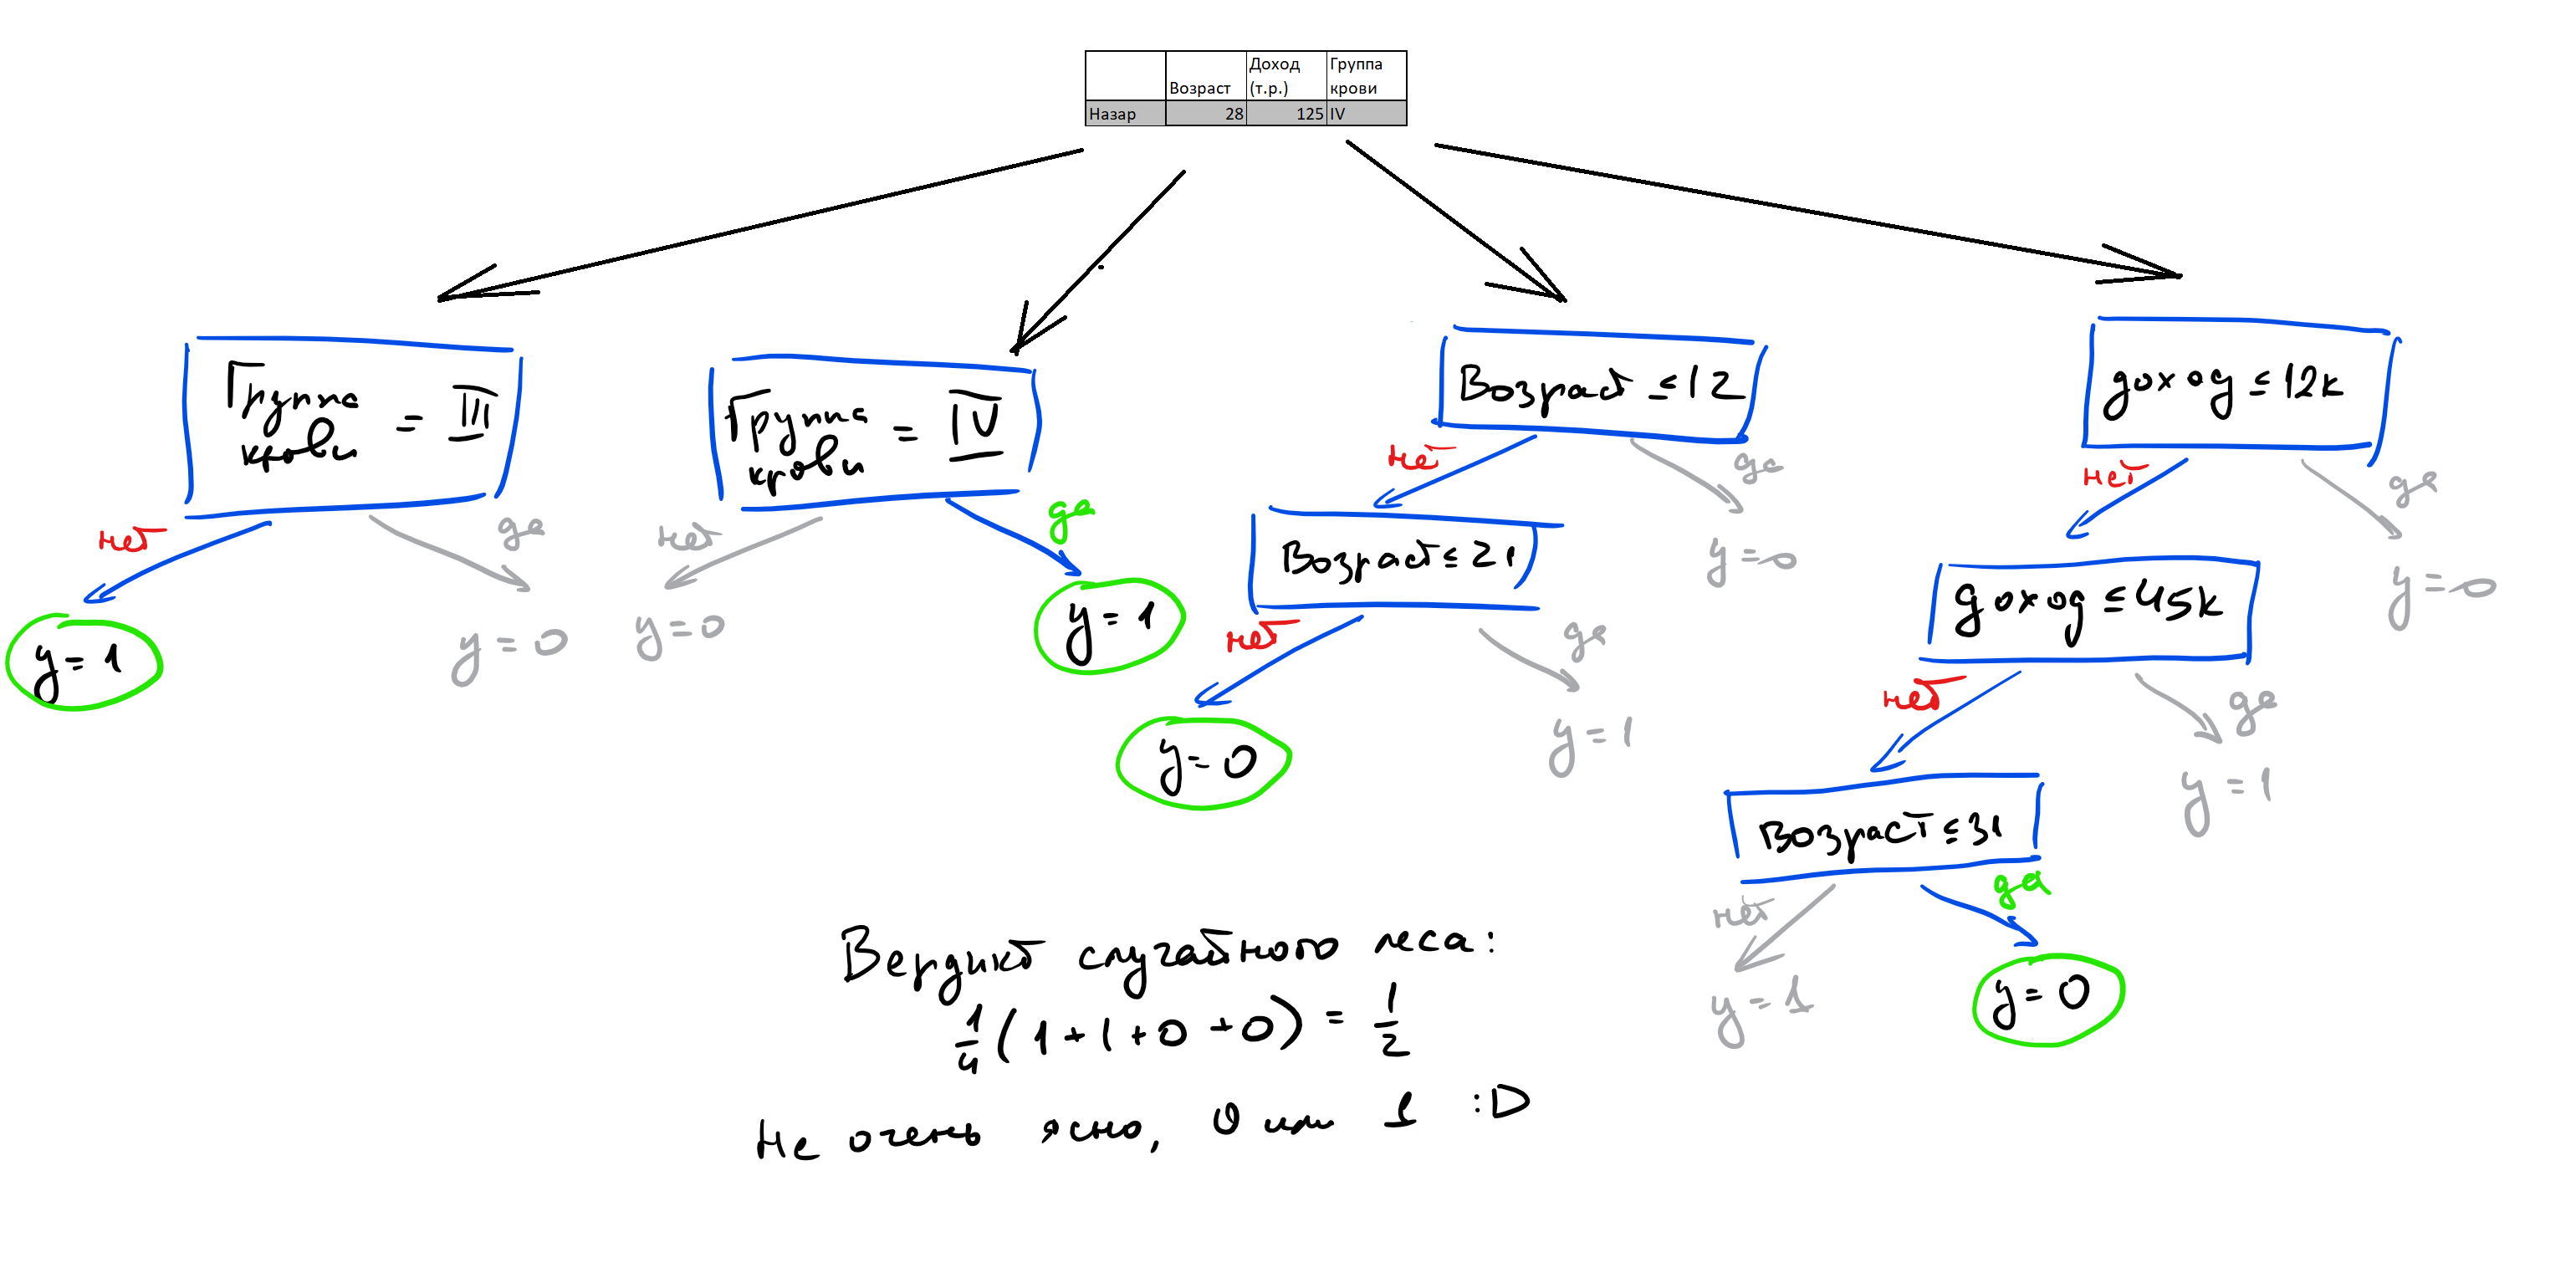 Возраст Доход (т.р.) Группа крови
Назар 28 125 IV
Группа крови = III
нет
да
y = 1
y = 0
Группа крови = IV
нет
да
y = 0
y = 1
Возраст ≤ 12
нет
да
y = 0
Возраст ≤ 21
нет
да
y = 0
y = 1
доход ≤ 12к
нет
да
y = 0
доход ≤ 45к
нет
да
y = 1
Возраст ≤ 31
нет
да
y = 1
y = 0
Вердикт случайного леса:
1/4 (1 + 1 + 0 + 0) = 1/2
Не очень ясно, 0 или 1 :D